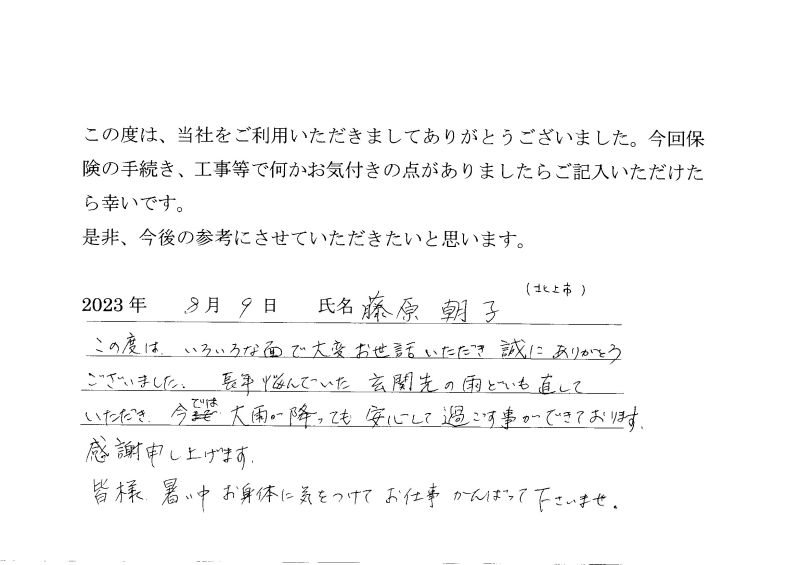 この度は、当社をご利用いただきましてありがとうございました。今回保
険の手続き、工事等で何かお気付きの点がありましたらご記入いただけた
ら幸いです。
是非、今後の参考にさせていただきたいと思います。
(北上市)
2023年 8月 9日 氏名 藤原 朝子
この度は、いろいろな面で大変お世話いただき 誠に ありがとう
ございました。 長年 悩んでいた 玄関先の雨どいも 直して
いただき、今では 大雨が降っても 安心して過ごす事ができております。
感謝申し上げます。
皆様、暑い中 お身体に気をつけて お仕事 がんばって下さいませ。